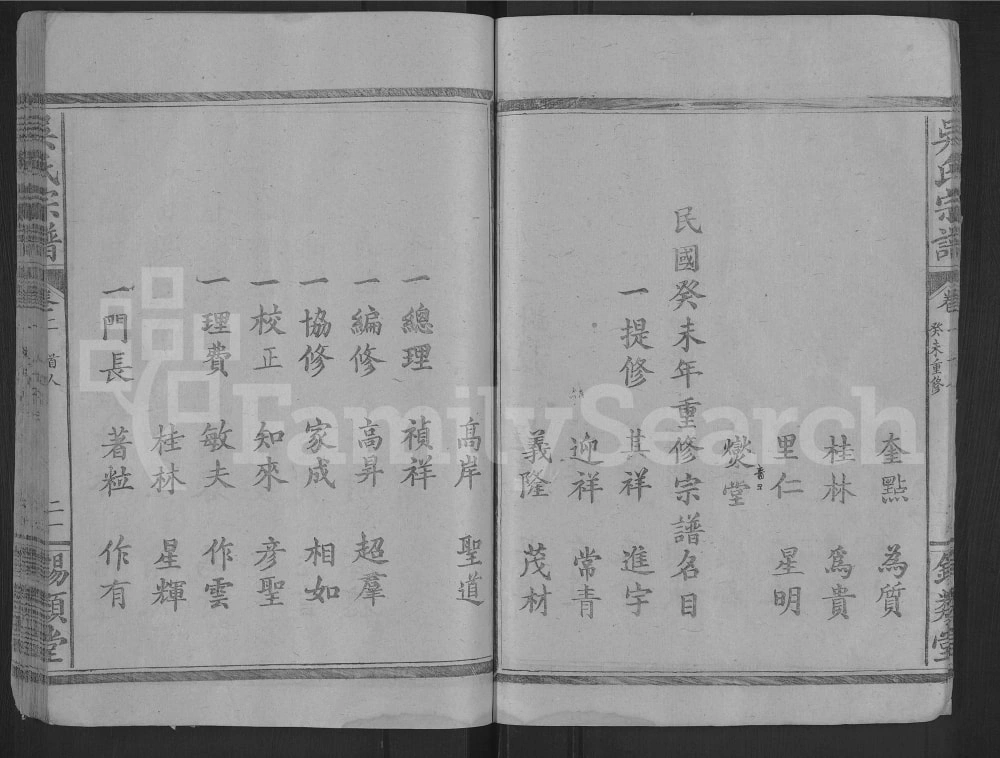 吳氏宗譜
卷一
癸未重修
錫類堂
奎點 為質
桂林 爲貴
里仁 星明
燮堂
民國癸未年重修宗譜名目
一提修 其祥 進宇
迎祥 常青
義隆 茂材
高岸 聖道
一總理 禎祥
一編修 高昇 超羣
一協修 家成 相如
一校正 知來 彥聖
一理費 敏夫 作雲
桂林 星輝
一門長 著粒 作有
吳氏宗譜
首人
二
錫類堂
FamilySearch